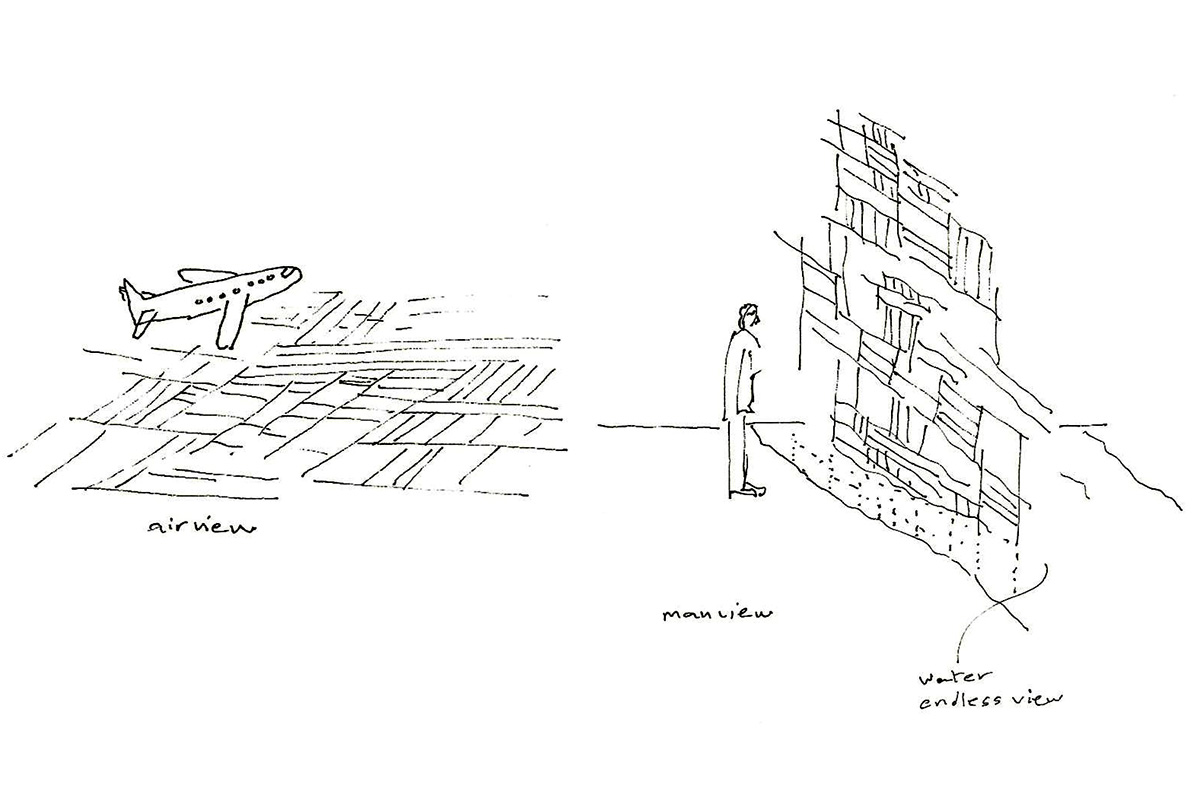 airview
manview
water
endless view